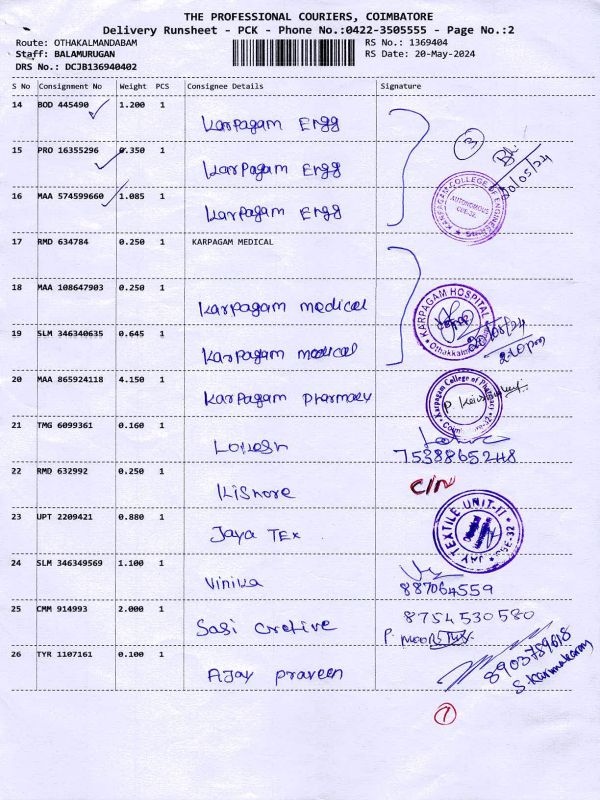 THE PROFESSIONAL COURIERS, COIMBATORE
Delivery Runsheet - PCK - Phone No.:0422-3505555 - Page No.:2
Route: OTHAKALMANDABAM RS No.: 1369404
Staff: BALAMURUGAN RS Date: 20-May-2024
DRS No.: DCJB136940402
S No Consignment No Weight PCS Consignee Details Signature
14 BOD 445490 1.200 1 Karpagam Engg
15 PRO 16355296 0.350 1 Karpagam Engg
3
20/05/24
16 MAA 574599660 1.085 1 Karpagam Engg
KARPAGAM COLLEGE OF ENGINEERING
AUTONOMOUS
CBE-32.
17 RMD 634784 0.250 1 KARPAGAM MEDICAL
18 MAA 108647903 0.250 1 Karpagam medical
KARPAGAM HOSPITAL
20/05/24
2.10pm
19 SLM 346340635 0.645 1 Karpagam medical
20 MAA 865924118 4.150 1 Karpagam pharmacy
Karpagam College of Pharmacy
21 TMG 6099361 0.160 1 Lokesh
7538865248
22 RMD 632992 0.250 1 Kishore
C/N
23 UPT 2209421 0.880 1 Jaya Tex
JAY TEXTILE UNIT-II
CBE-32
24 SLM 346349569 1.100 1 Vinika
887064559
25 CMM 914993 2.000 1 Sasi cretive
8754530580
26 TYR 1107161 0.100 1 Ajay praveen
8903789618
S. Karmakaran
1